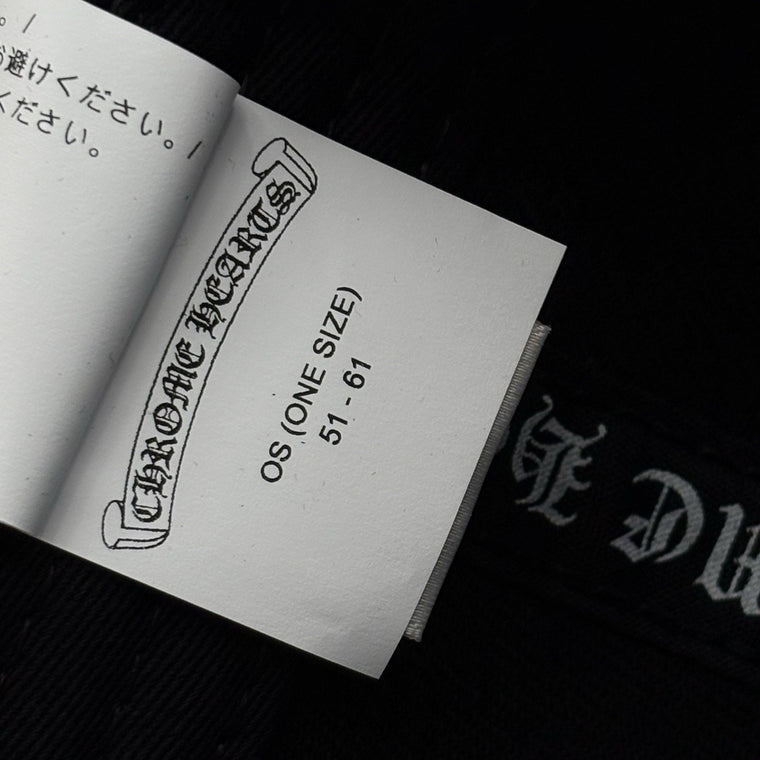 。/
お避けください。/
ください。
CHROME HEARTS
OS (ONE SIZE)
51 - 61